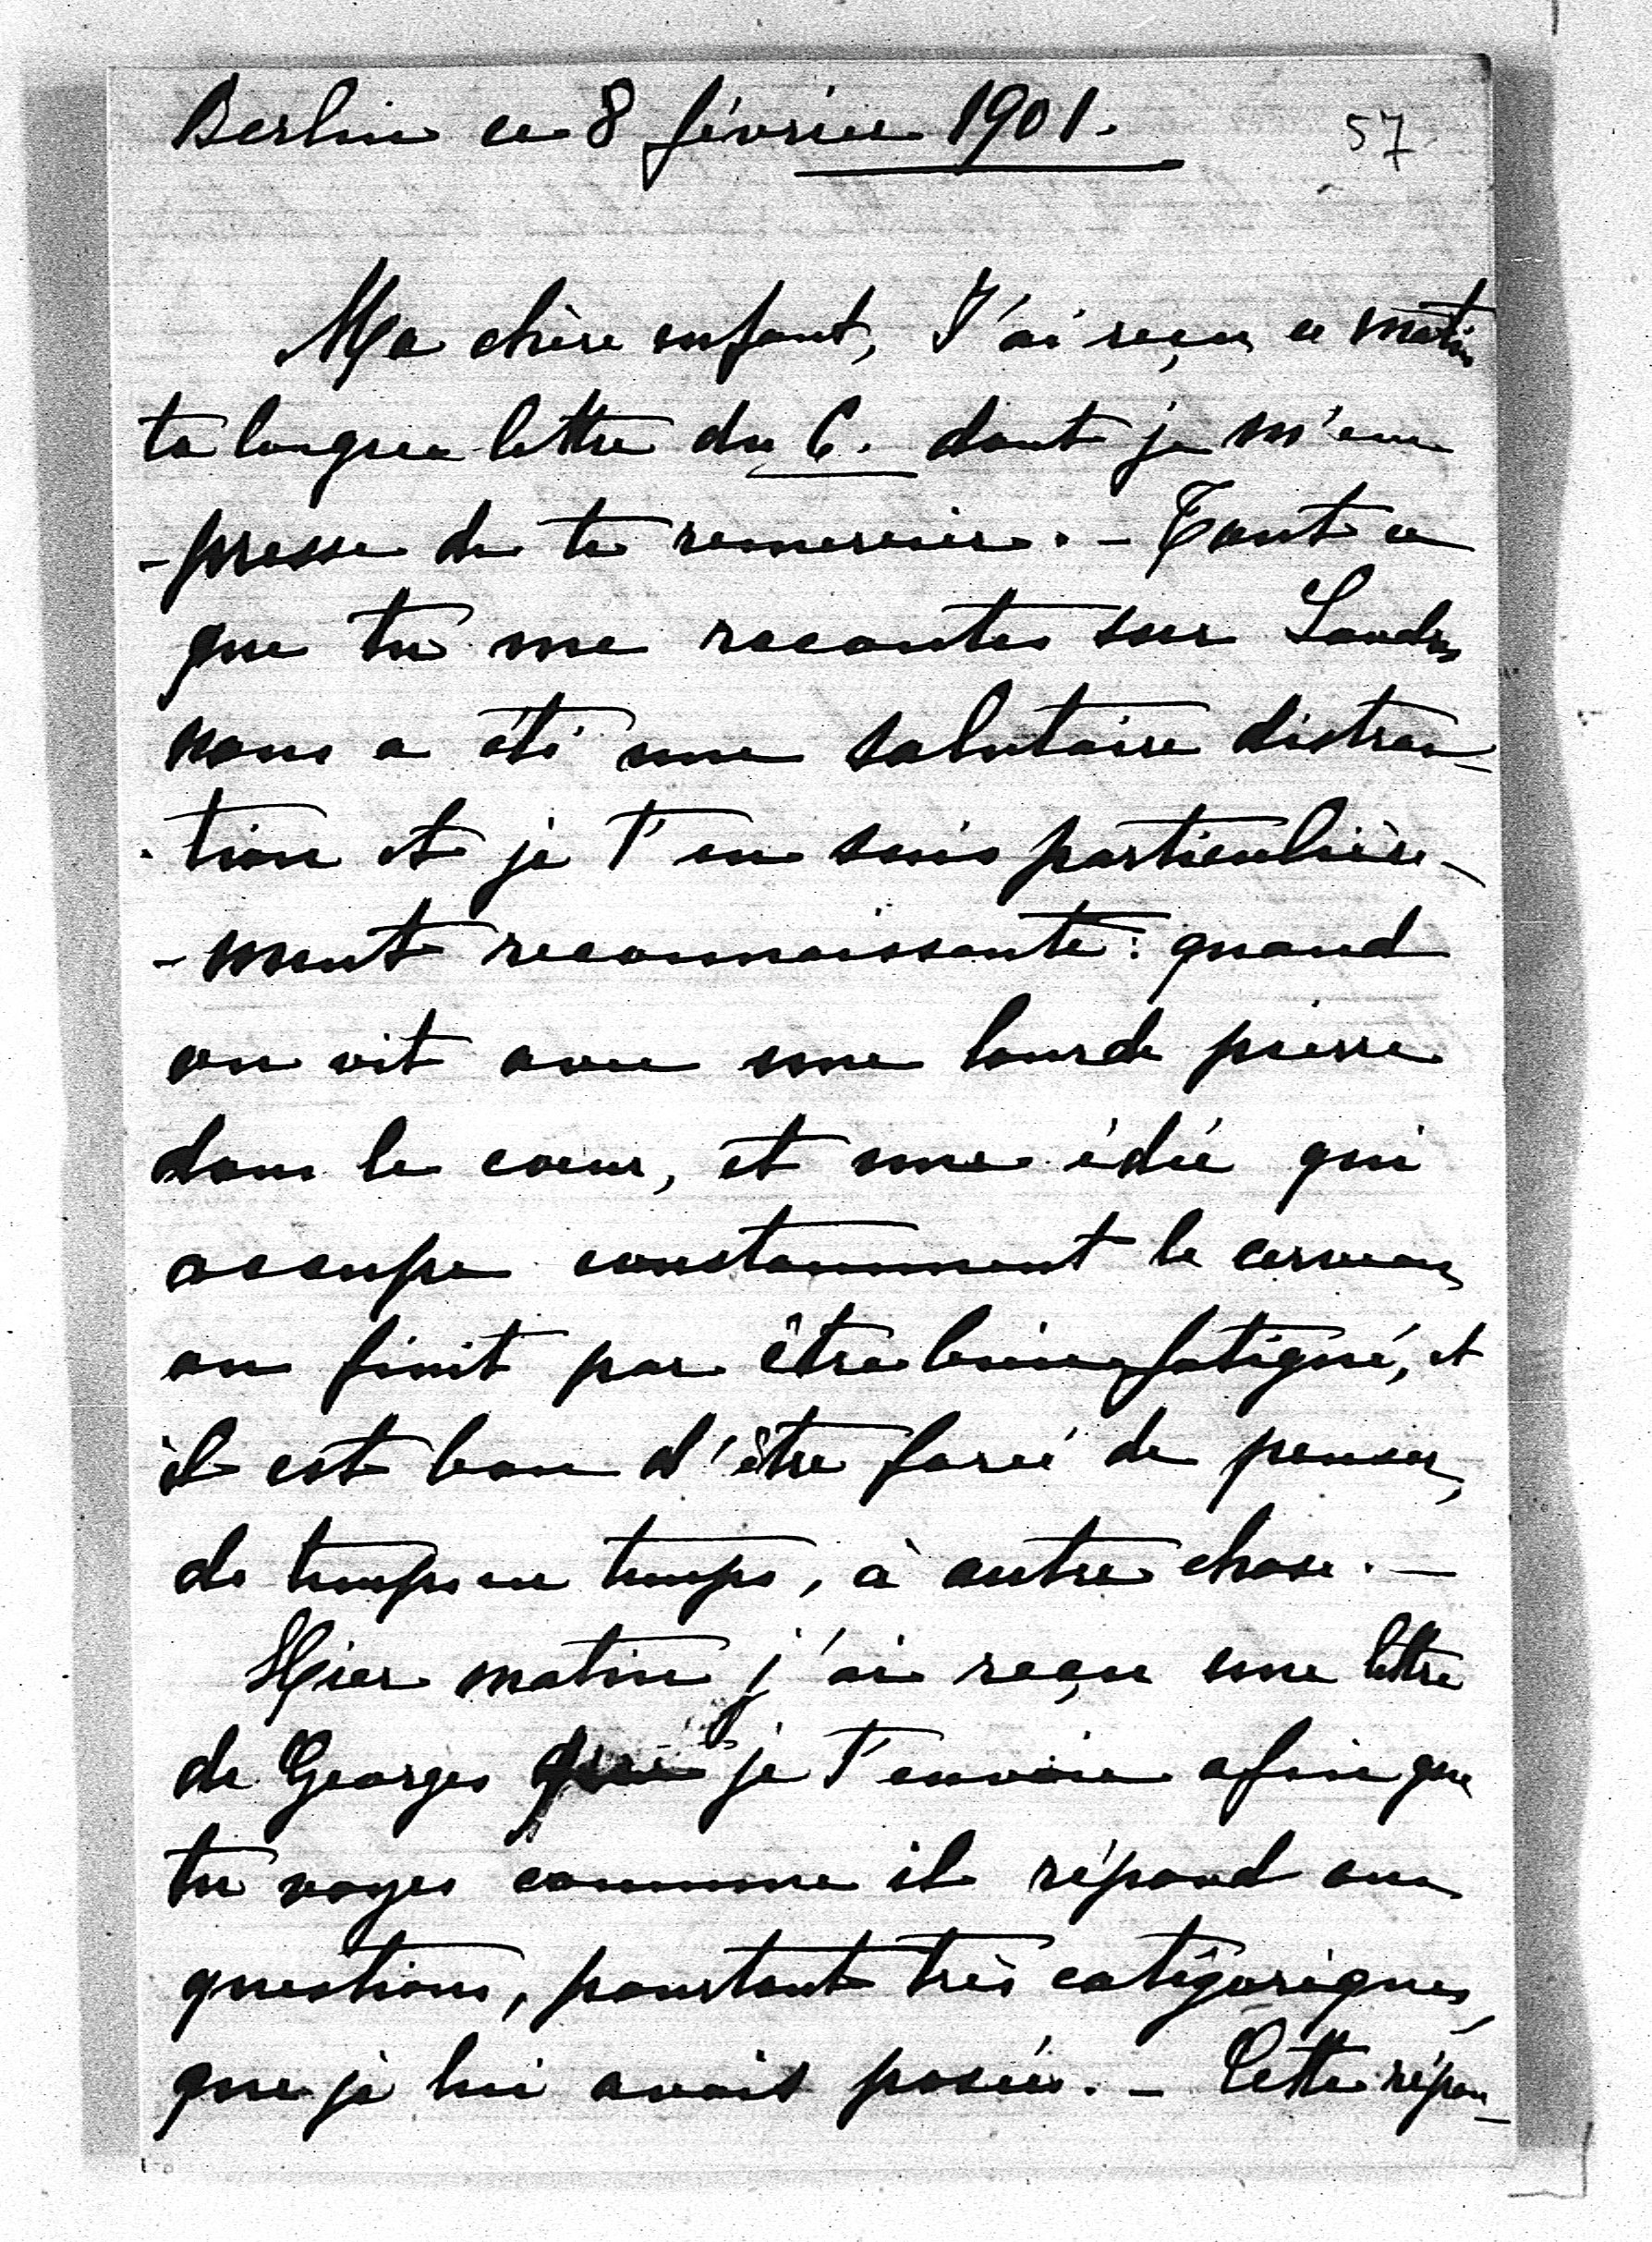 Berlin ce 8 février 1901.
57
Ma chère enfant, J'ai reçu ce matin
ta longue lettre du 6. dont je m'em
-presse de te remercier. - Tout ce
que tu me racontes sur Londres
nous a été une salutaire distrac-
-tion et je t'en suis particulière-
-ment reconnaissante: quand
on vit avec une lourde pierre
dans le coeur, et une idée qui
occupe constamment le cerveau,
on finit par être bien fatigué, et
il est bon d'être forcé de penser,
de temps en temps, à autre chose. -
Hier matin j'ai reçu une lettre
de Georges que je t'envoie afin que
tu voyes comme il répond aux
questions, pourtant très catégoriques,
que je lui avais posées. - Cette répon-